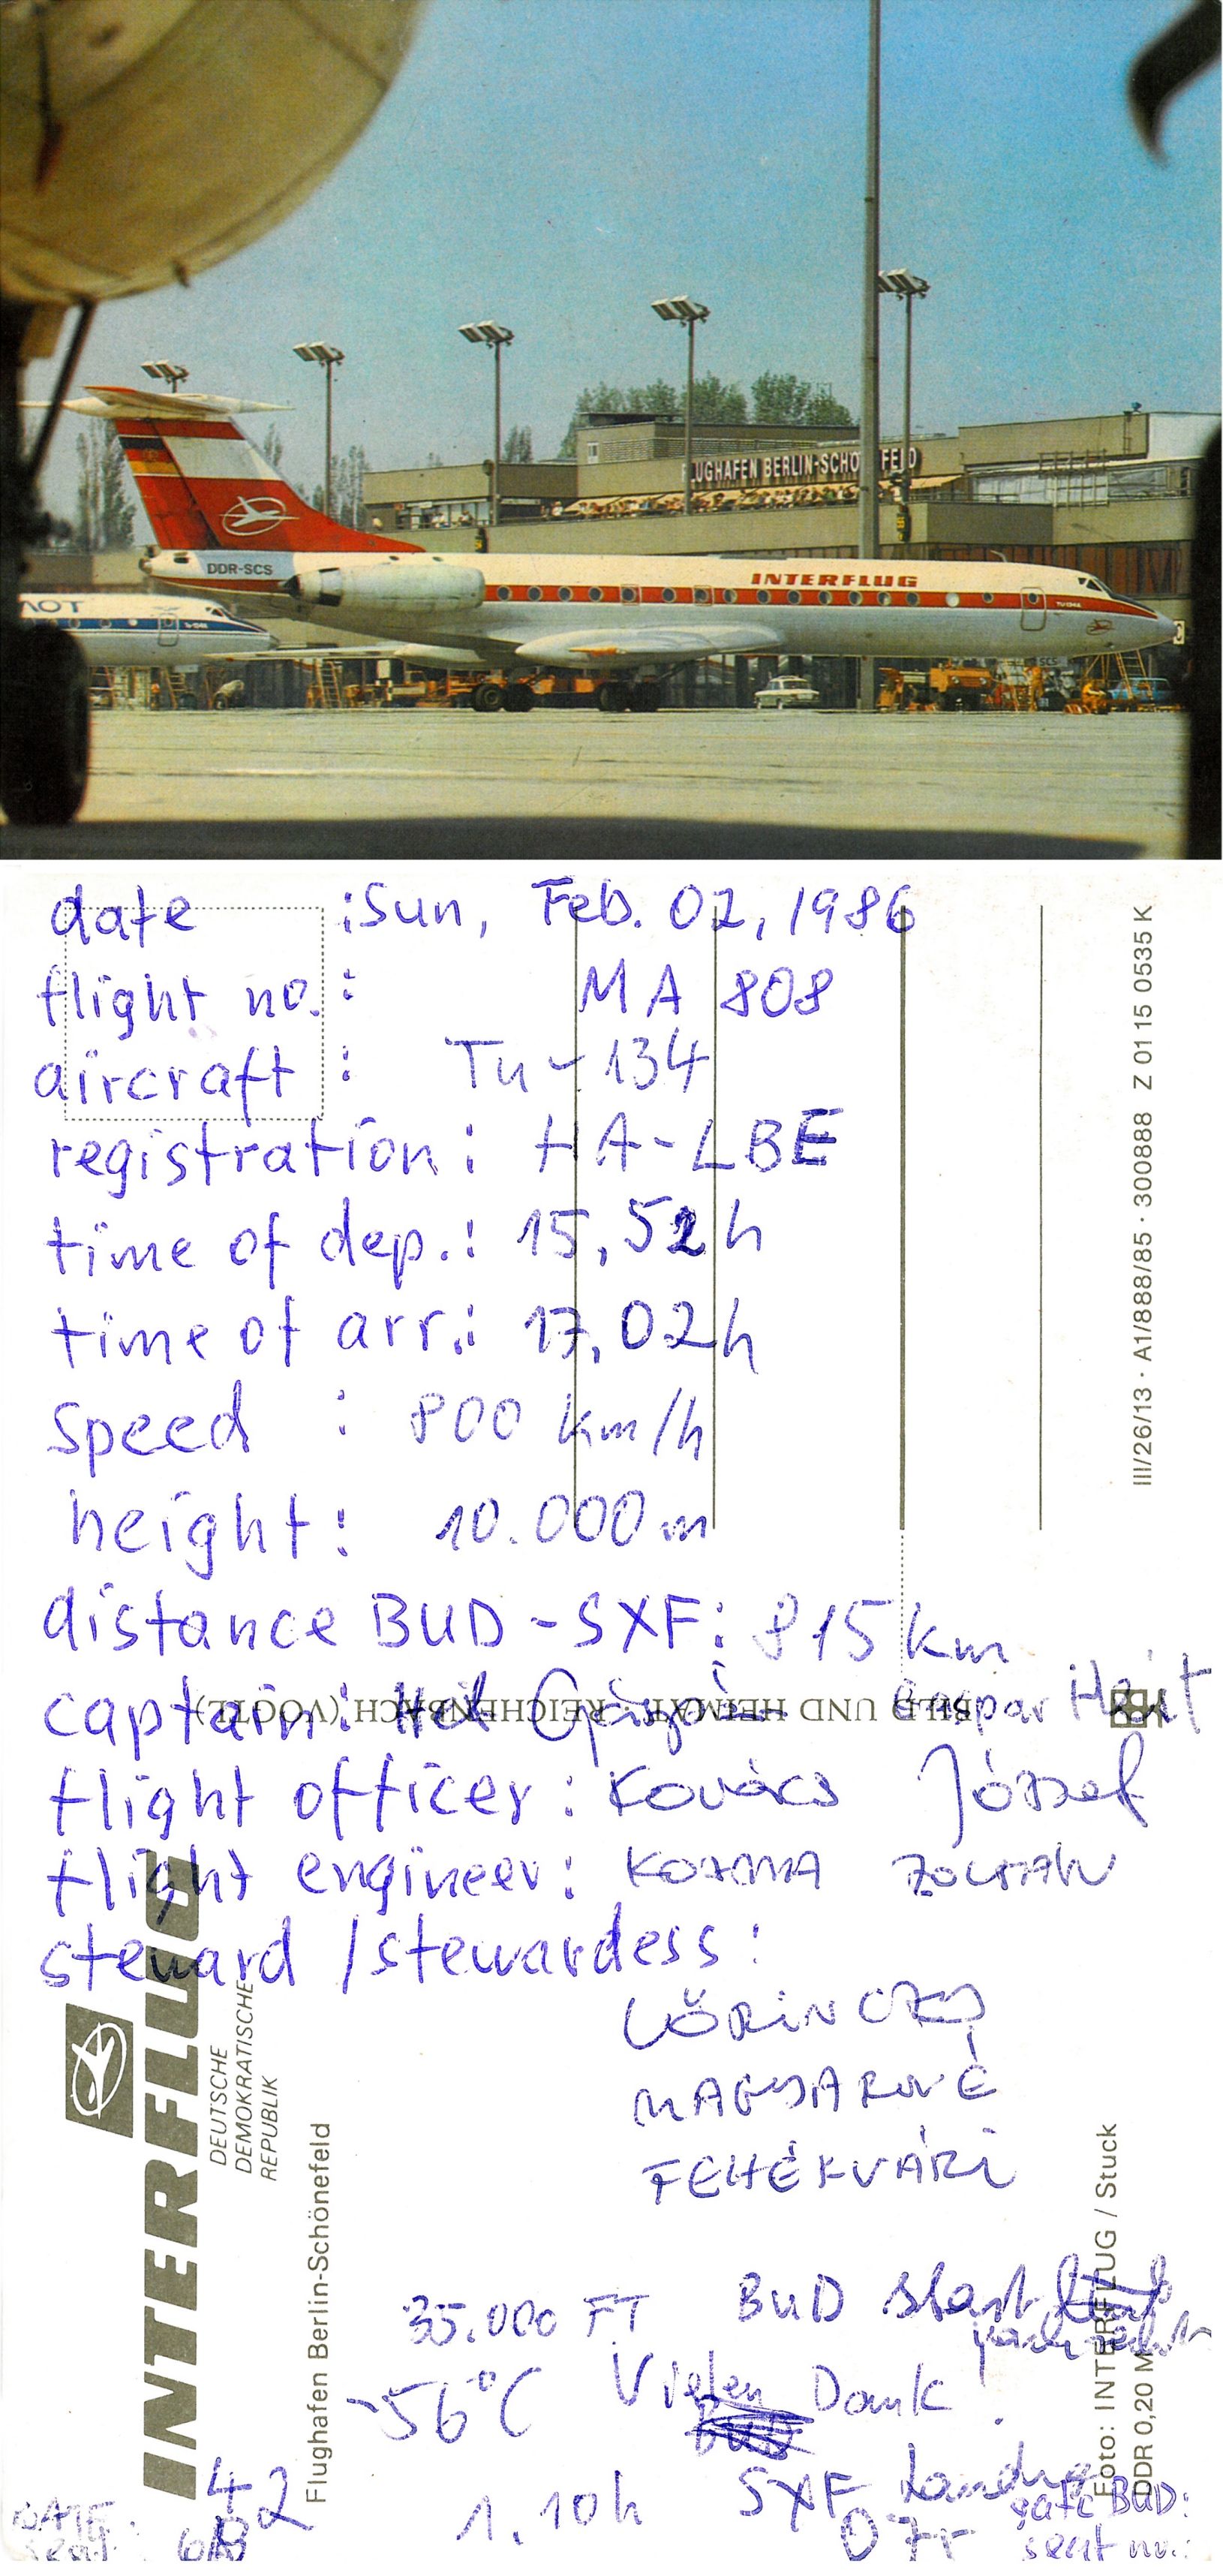 FLUGHAFEN BERLIN-SCHÖNEFELD
DDR-SCS
INTERFLUG
TU-134A
ЛОТ
SCS
date :Sun, Feb. 02, 1986
flight no.: MA 808
aircraft : Tu-134
registration: HA-LBE
time of dep.: 15,52h
time of arr.: 17,02h
speed : 800 km/h
height: 10.000 m
distance BUD-SXF: 815 km
captain: Gáspár
flight officer: Kovács József
flight engineer: KOZMA ZOLTÁN
steward /stewardess:
LŐRINCZY
MAGYARNÉ
FEHÉRVÁRI
35.000 FT BUD start
-56°C Vielen Dank!
42 1.10h SXF Landung
07r
gate BUD:
seat no.:
GATE:
seat: 6B
III/26/13 · A1/888/85 · 300888 Z 01 15 0535 K
BILD UND HEIMAT REICHENBACH (VOGTL)
INTERFLUG
DEUTSCHE
DEMOKRATISCHE
REPUBLIK
Flughafen Berlin-Schönefeld
Foto: INTERFLUG / Stuck
DDR 0,20 M